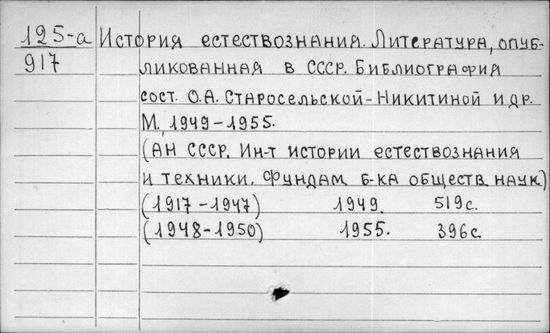 125-а История естествознания. Литература, опуб-
917 ликованная в СССР. Библиография
сост. О.А. Старосельской-Никитиной и др.
М., 1949-1955.
(АН СССР. Ин-т истории естествознания
и техники. Фундам. б-ка обществ. наук)
(1917-1947) 1949. 519с.
(1948-1950) 1955. 396с.